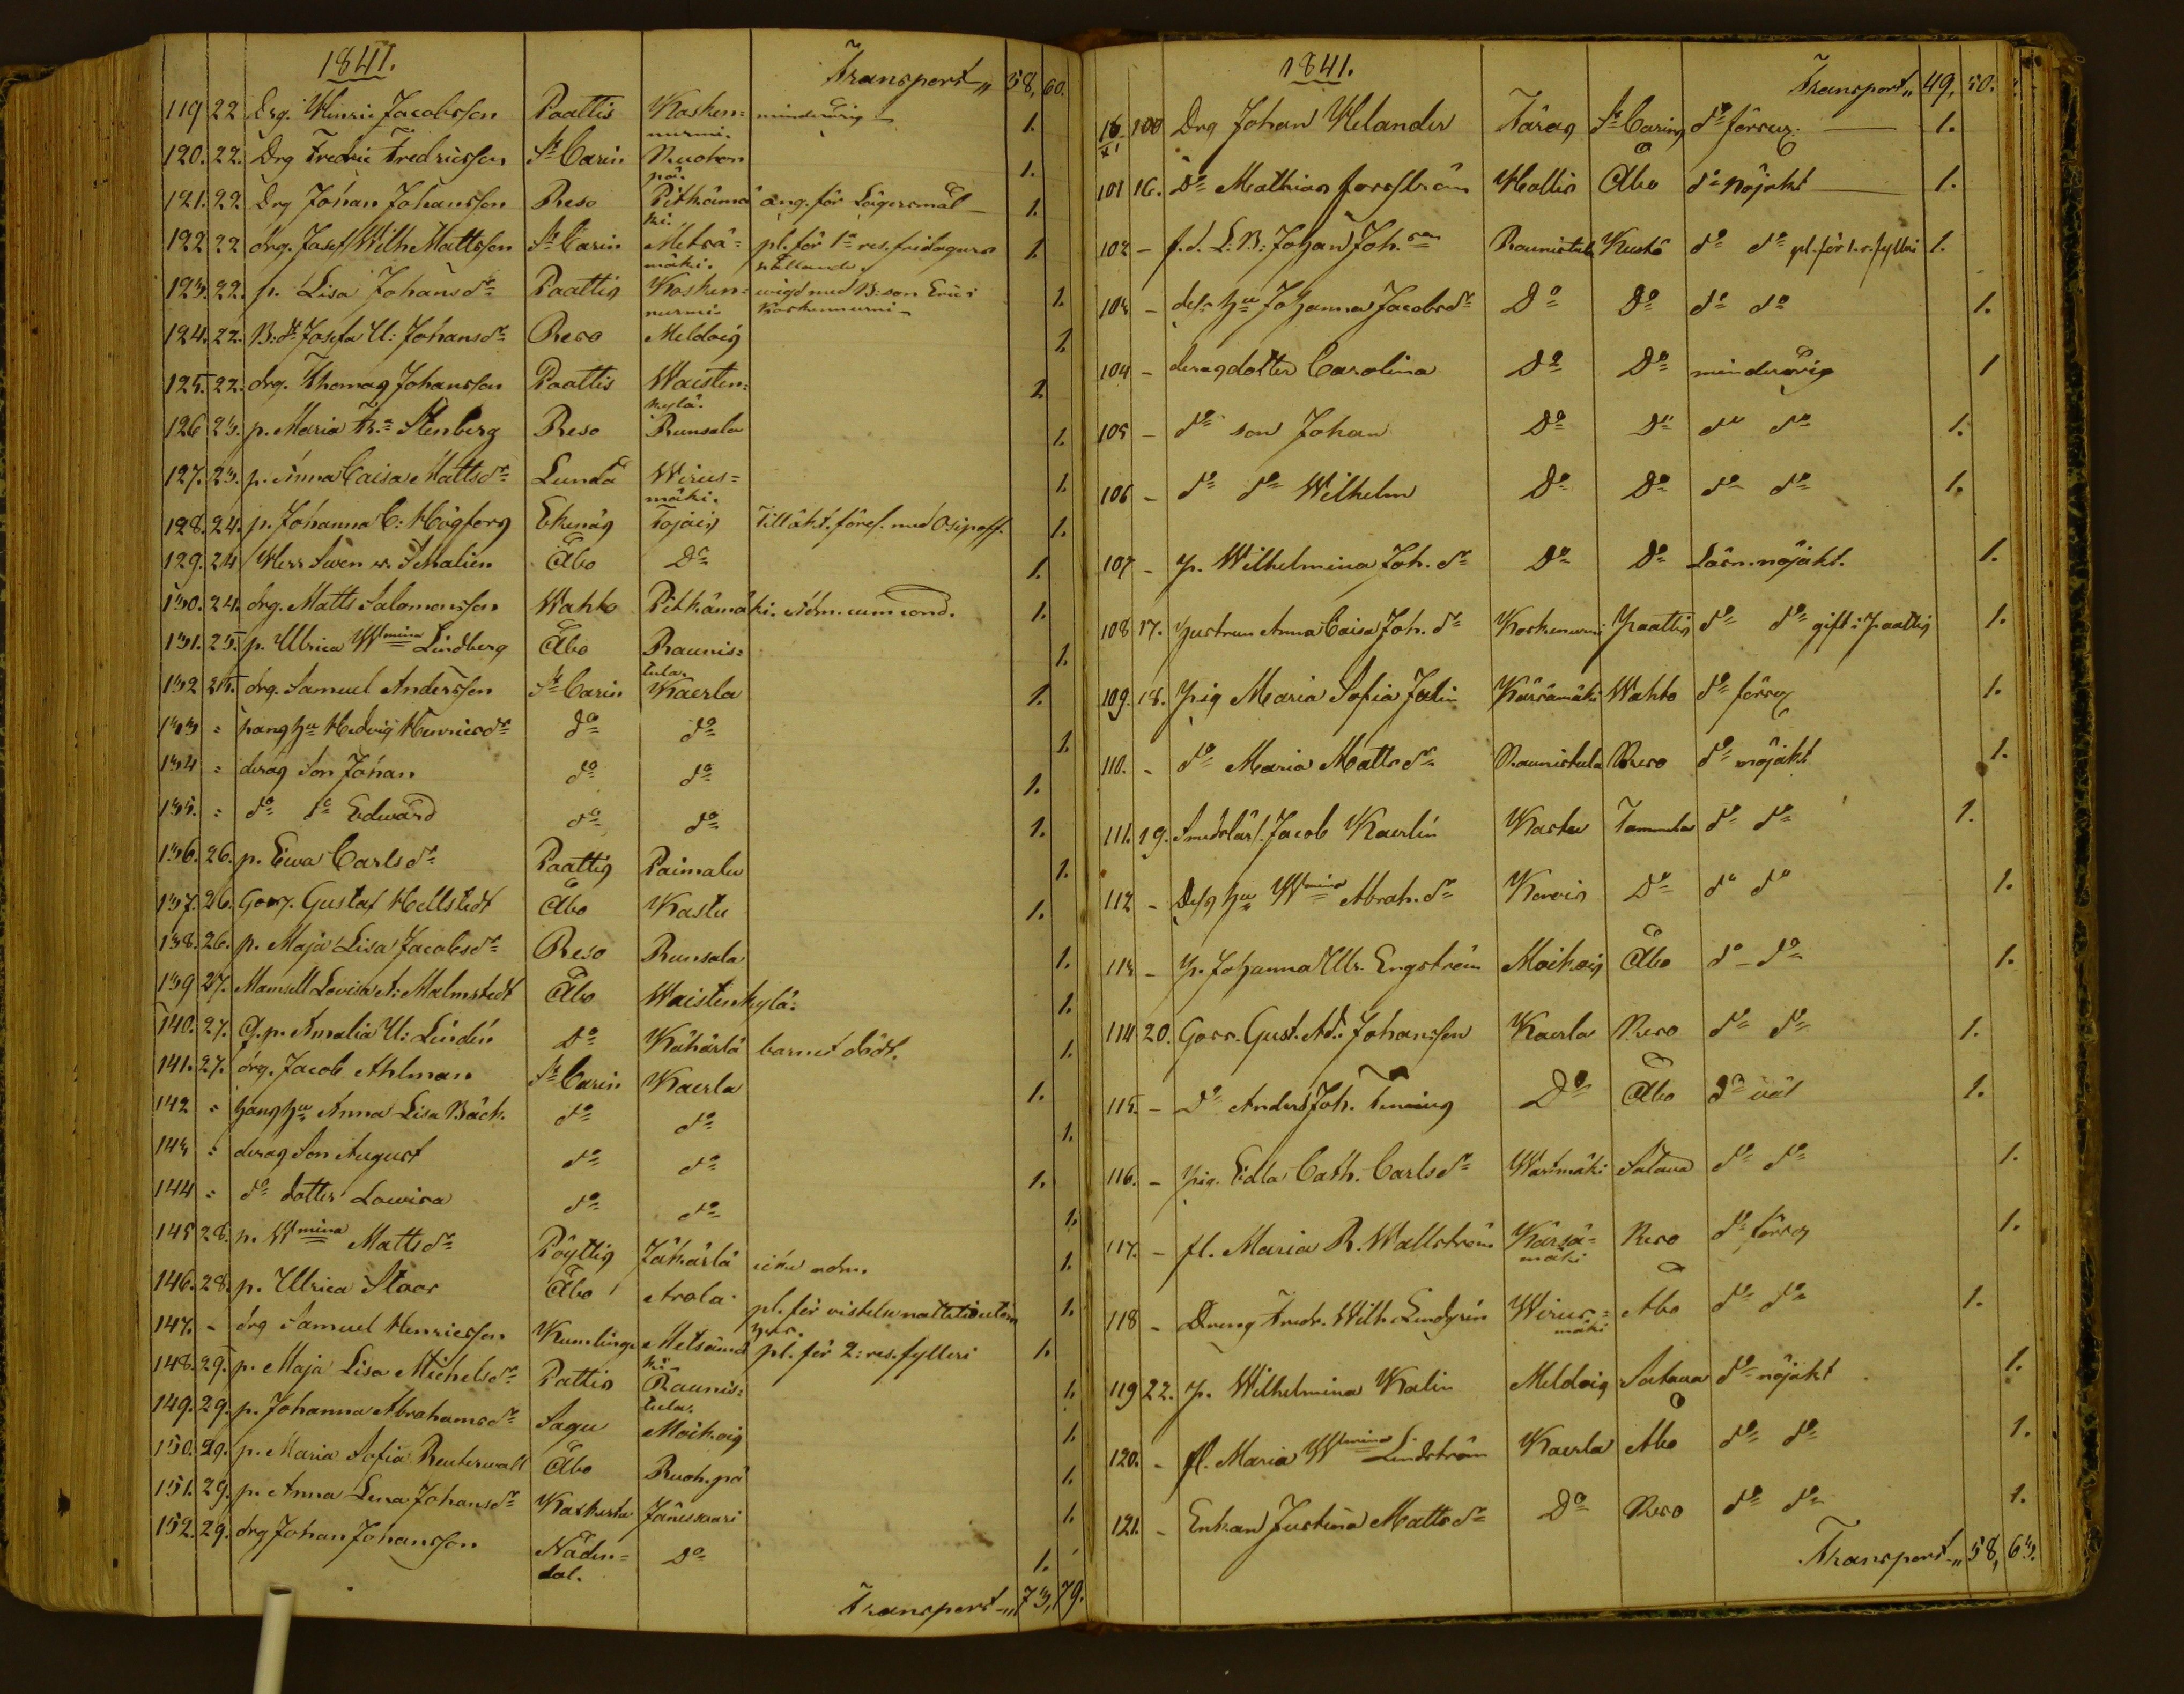 1841.
Transport „ 58, 60.
119 22 Drg. Henric Jacobsson Paattis Kosken= minderårig 1.
nurmi.
120. 22. Drg Fredric Fredricsson St Carin Ruohon 1.
pä.
121. 22 Drg Johan Johansson Reso Pitkämä äng. för Lägersmål 1.
ki.
122 22 drg. Josef Wilh Mattsson St Carin Metsä= pl. för 1a res. 1
mäki.
123. 22. p. Lisa Johansdr Paattis Kosken= wigd med B:son Eric 1.
nurmi. Koskennurmi
124. 22. B:dr Josefa U: Johansdr Reso Meldoig 1.
125. 22. drg. Thomas Johansson Paattis Waisten= 1.
kylä.
126 23. p. Maria Stenberg Reso Runsala 1.
127. 23. p. Anna Caisa Mattsdr Lundå Wirus= 1.
mäki.
128. 24. p. Johanna C: Högforg Ekenäs Tojois Till äkt. föres. med Osipoff. 1.
129. 24 Herr Swen v. Schalien Åbo Do 1.
130. 24. drg. Matts Salomonsson Wahto Pitkämäki. Adm. cum cond. 1.
131. 25. p. Ulrica Wmina Lindberg Åbo Raunis= 1.
tula.
132 25. drg. Samuel Andersson St Carin Kaerla 1.
133 = hans hu Hedvig Henricsdr do do 1.
134 = deras Son Johan do do 1.
135. = do do Edward do do 1.
136. 26. p. Ewa Carlsdr Paattis Paimala 1.
137. 26. Goss. Gustaf Hellstedt Åbo Kastu 1.
138. 26. p. Maja Lisa Jacobsdr Reso Runsala 1.
139 27. Mamsell Lovisa A: Malmstedt Åbo Waistenkylä. 1.
140. 27. Q.p. Amalia U: Lindén Do Kähärlä barnet dödt. 1.
141. 27. drg. Jacob Ahlman St Carin Kaerla 1.
142 = hans hu Anna Lisa Bäck. do do 1.
143 = deras Son August do do 1.
144 = do dotter Lowisa do do 1.
145 28. p. Wmina Mattsdr Pöyttis Kähärlä icke adm. 1.
146. 28. p. Ulrica Staor Åbo Arola. pl. för 1.
147. - drg Samuel Henricsson Kumlinge Metsämä pl. för 2: res. fylleri 1.
ki
148. 29. p. Maja Lisa Michelsdr Pattis Raunis= 1.
tula.
149. 29. p. Johanna Abrahamsdr Sagu Moikois 1.
150. 29. p. Maria Sofia Reuterwall Åbo Ruoh.pä 1.
151. 29. p. Anna Lena Johansdr Kaskerta Jänessaari 1.
152. 29. drg Johan Johansson Nåden= Do 1.
dal.
Transport „ 73, 79.
1841.
Transport „ 49, 50.
100 16 Drg Johan Helander Karag St Carins do försvz. 1.
101 16. Do Mathias Forsström Hallis Åbo do nöjakt 1.
102 - f.d. L:B: Johan Joh.son Raunistula Kustö do do pl. för 1. r. fylleri 1.
103 - dess hu Johanna Jacobsdr Do Do do do 1.
104 - deras dotter Carolina Do Do minderårig 1
105 - do son Johan Do Do do do 1.
106 - do do Wilhelm Do Do do do 1.
107 - p. Wilhelmina Joh. dr Do Do Läsn. nöjakt. 1.
108 17. Hustrun Anna Caisa Joh. dr Koskenurmi Paattis do do gift i Paattis 1.
109. 18. Pig Maria Sofia Julin Kärsämäki Wahto do försvz 1.
110. - do Maria Mattsdr Raunistula Reso do nöjakt 1.
111. 19. Smedslärl. Jacob Kaerlin Kastu Tammela do do 1.
112 - Dess hu Wmina Abrah. dr Kerois Do do do 1.
113 - p. Johanna Ulr. Engström Moikois Åbo do do 1.
114 20. Goss. Gust. Ad. Johansson Kaerla Reso do do 1.
115. - Do Anders Joh. Tening Do Åbo do väl 1.
116. - Pig. Edla Cath. Carlsdr Wartmäki Satava do do 1.
117. - fl. Maria R. Wallström Kärsä= Reso do försvz 1.
mäki
118 - Dreng Fredr. Wilh. Lindgrén Wirus= Åbo do do 1.
mäki
119 22. p. Wilhelmina Kalin Meldoig Satava do nöjakt 1.
120. - fl. Maria Wmina Lindström Kaerla Åbo do do 1.
121. - Enkan Justina Mattsdr Do Reso do do 1.
Transport „ 58, 63.